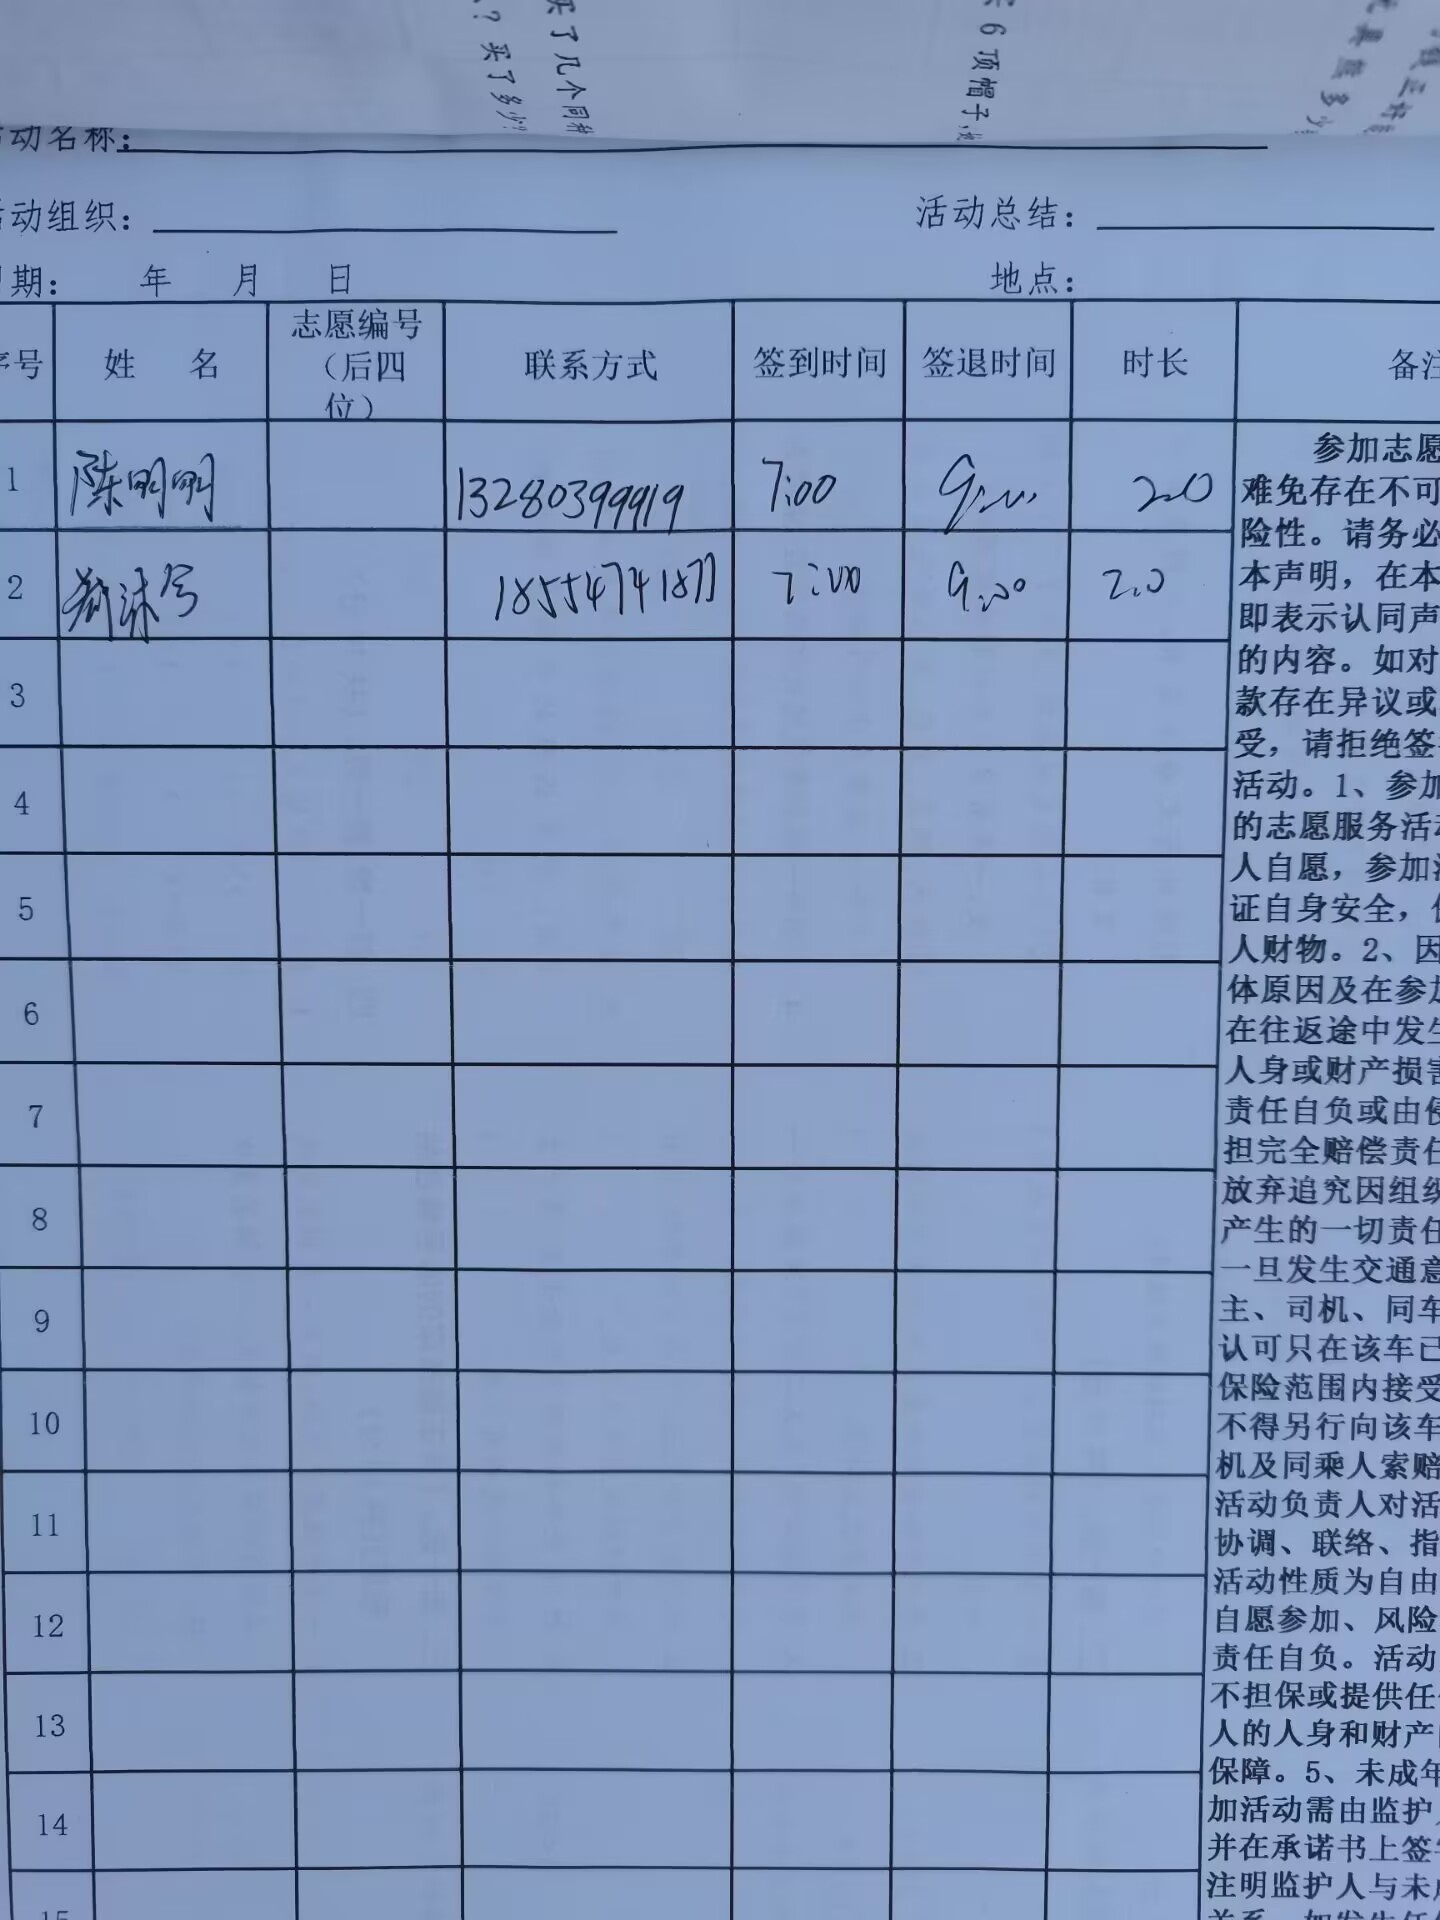 买了几个同种
？买了多少？
买6顶帽子，
具熊多少
活动名称：
活动组织：
活动总结：
日期： 年 月 日
地点：
序号 姓 名 志愿编号（后四位） 联系方式 签到时间 签退时间 时长 备注
1 陈明明 13280399919 7:00 9:00 2.0
2 7:00 9:00 2.0
3
4
5
6
7
8
9
10
11
12
13
14
15
参加志愿
难免存在不可
险性。请务必
本声明，在本
即表示认同声
的内容。如对
款存在异议或
受，请拒绝签
活动。1、参加
的志愿服务活动
人自愿，参加活
证自身安全，保
人财物。2、因
体原因及在参加
在往返途中发生
人身或财产损害
责任自负或由侵
担完全赔偿责任
放弃追究因组织
产生的一切责任
一旦发生交通意
主、司机、同车
认可只在该车已
保险范围内接受
不得另行向该车
机及同乘人索赔
活动负责人对活
协调、联络、指
活动性质为自由
自愿参加、风险
责任自负。活动
不担保或提供任何
人的人身和财产
保障。5、未成年
加活动需由监护人
并在承诺书上签字
注明监护人与未成